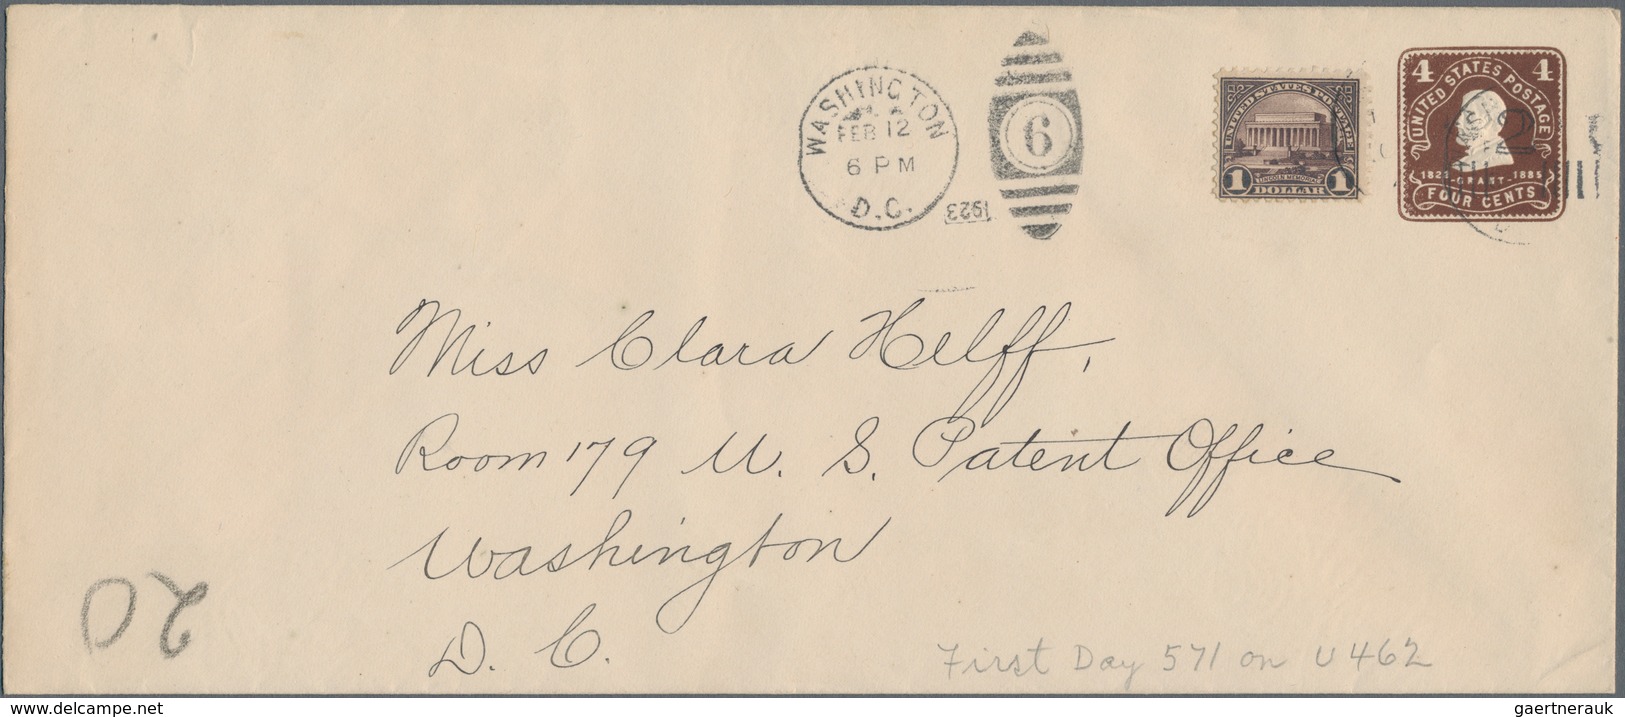 WASHINGTON
FEB 12
6 PM
D.C.
1923
6
UNITED STATES POSTAGE
LINCOLN MEMORIAL
1 DOLLAR 1
4 4
UNITED STATES POSTAGE
GRANT - 1885
FOUR CENTS
Miss Clara Helff,
Room 179 U. S. Patent Office
Washington
D. C.
20
First Day 571 on U462
www.delcampe.net
gaertnerauk